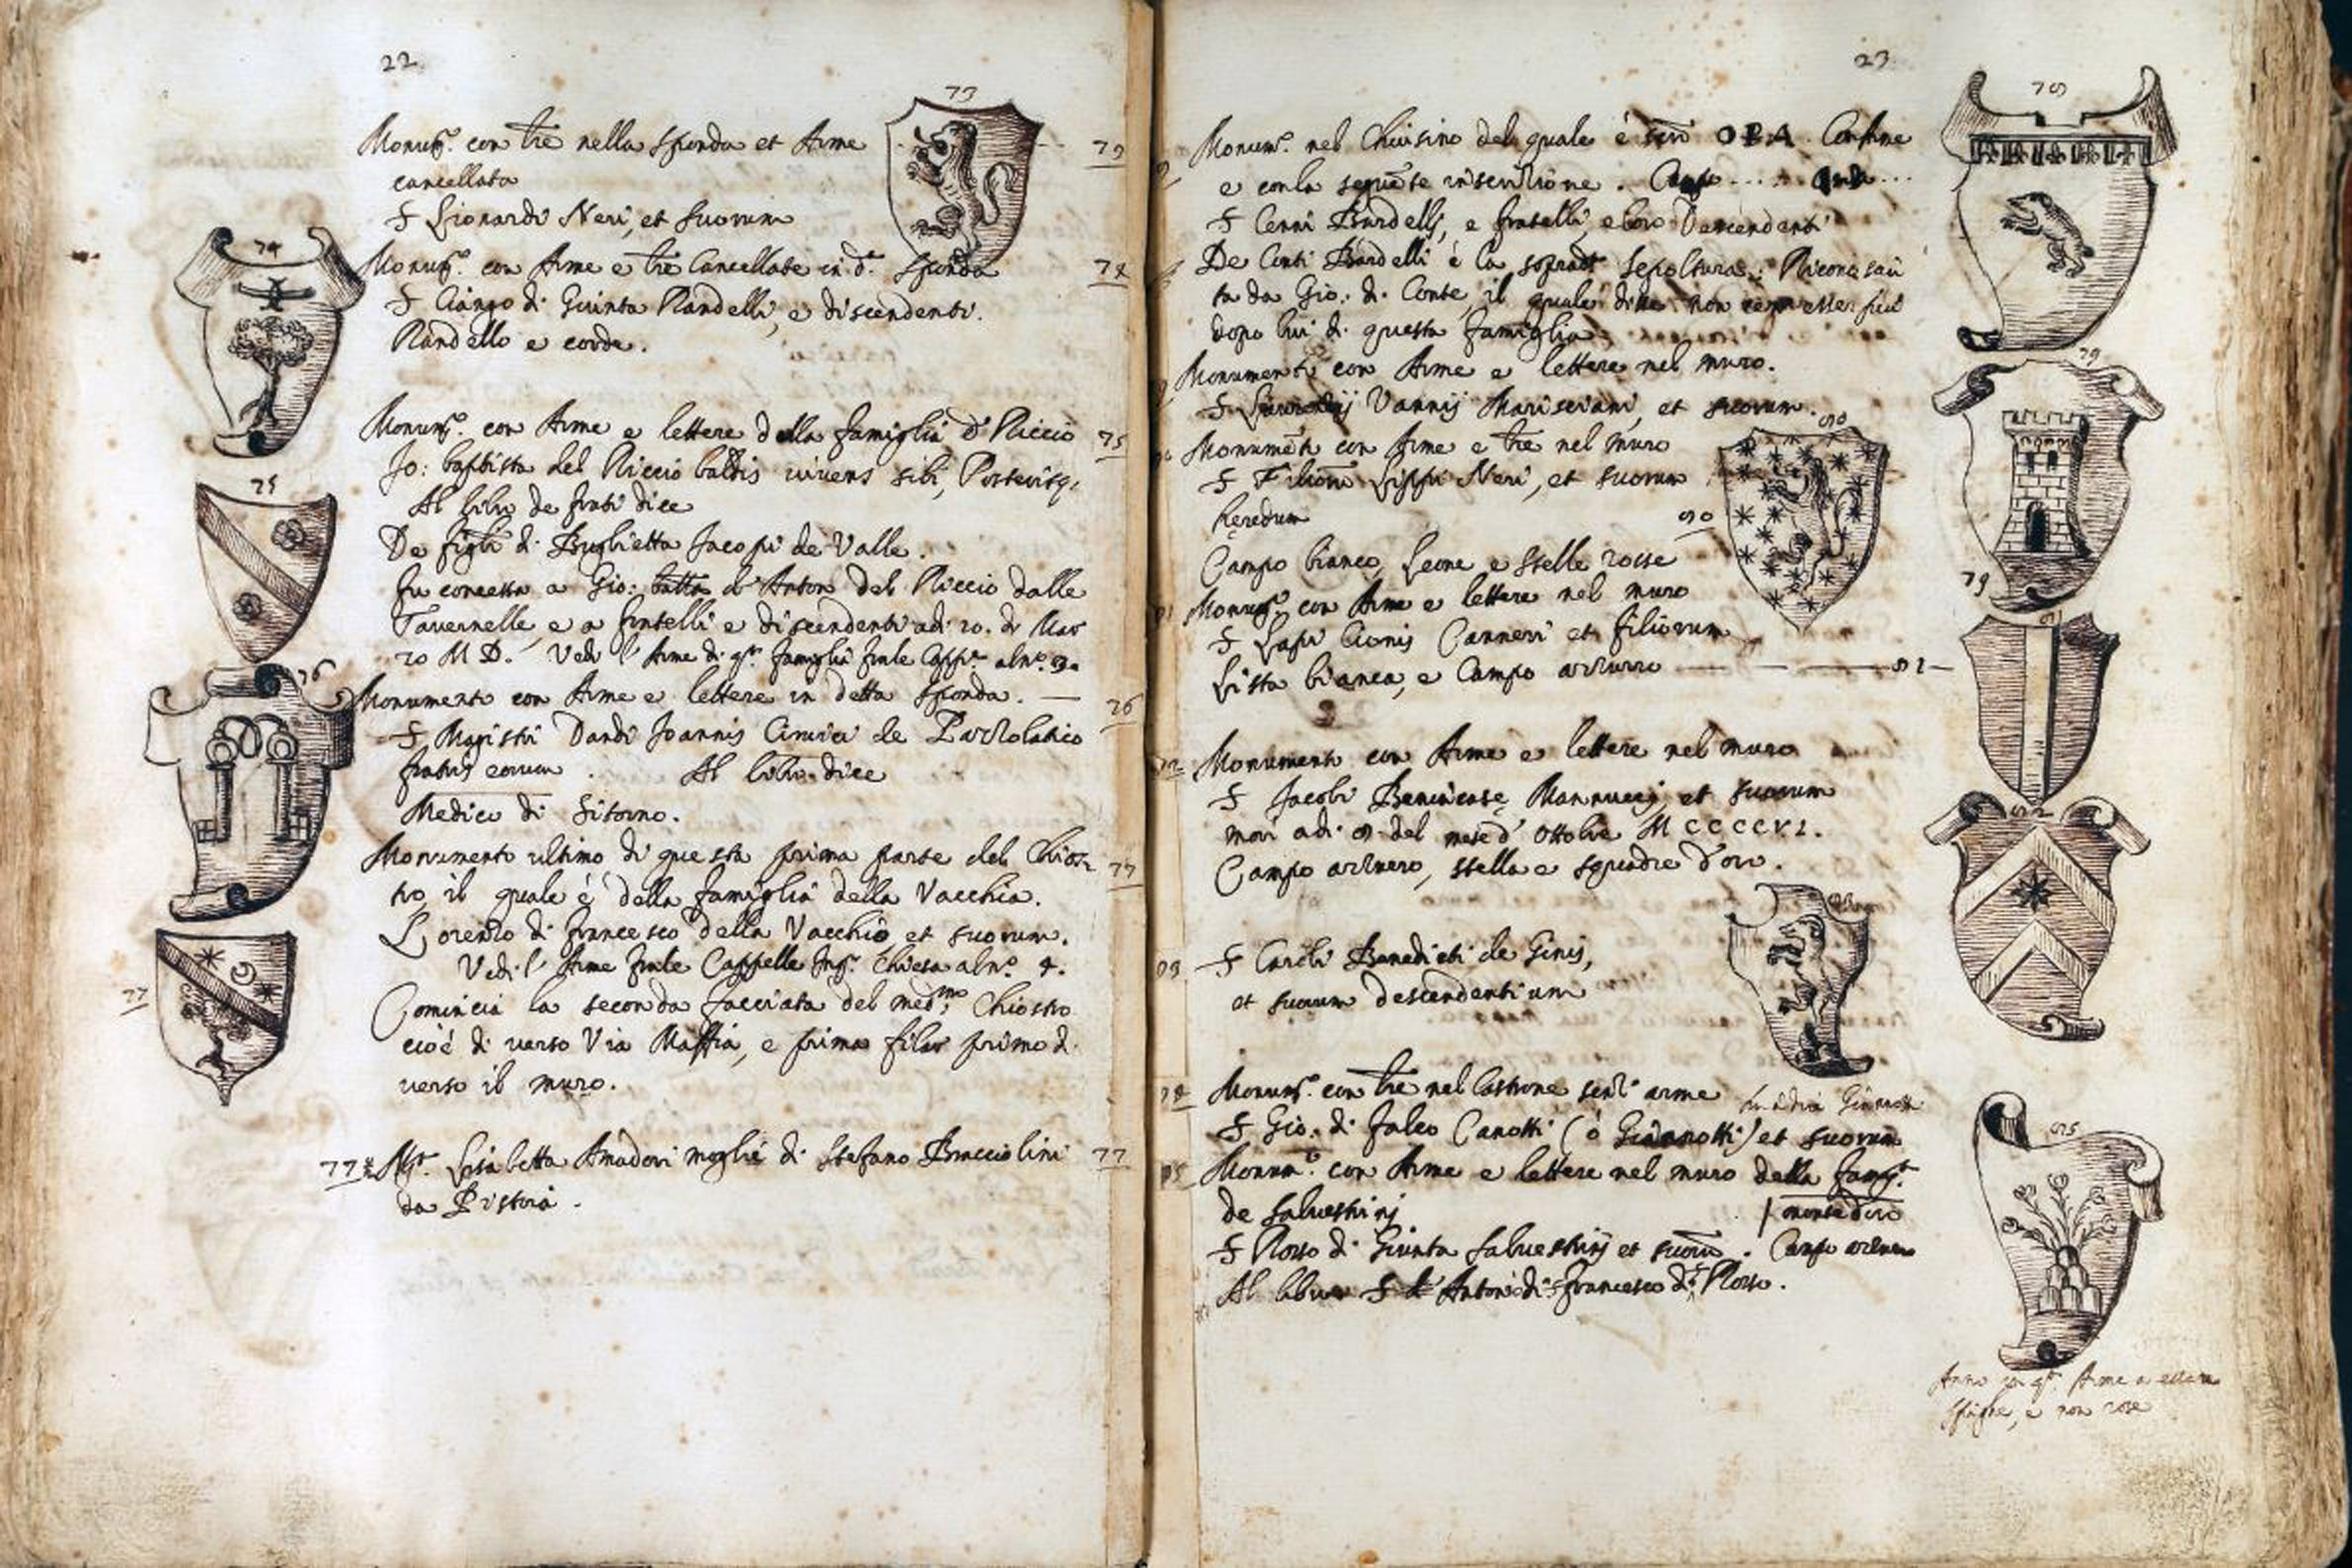 22
73
Monum.to con lre nella sponda et Arme 73
cancellata
S Lionardi Neri, et suorum
74
Monum.to con Arme e lre Cancellate in d.a sponda 74
S Ciango di Giunta Randelli, e discendenti.
Randello e corde.
Monum.to con Arme e lettere della famiglia d'Riccio 75
Jo: baptista del Riccio baldis vivens sibi, Posterisq,
75
Al libro de frati dice
De figli di Buglietta Jacopi de Valle.
fu concessa a Gio: batta d'Anton del Riccio dalle
Tavernelle, e a fratelli e discendenti adi 20. di Mar
zo M D. Vedi l'Arme di q.ta famiglia frale Capp.e al n.o 3.
76
Monumento con Arme e lettere in detta sponda. 76
S Magistri Dandi Joannis de
fratris eorum. Al libro dice
Medico di Sitorno.
Monumento ultimo di questa prima parte del Chios 77
tro il quale è della famiglia della Vacchia.
Lorenzo di francesco della Vacchio et suorum.
Vedi l'Arme frale Cappelle Chiesa al n.o 4.
77
Comincia la seconda facciata del med.mo Chiostro
cioè di verso Via Maffia, e prima filar primo di
verso il muro.
77 Lisabetta Amadori moglie di Stefano Bracciolini 77
da Pistoia.
23
78
Monum.to nel Chiusino del quale è OPA Con Arme
e con la seguete inscrizione.
S Cenni Bardelli, e fratelli e loro Descendenti
De Conti Bardelli è la soprad.a sepoltura: Riconosciu
ta da Gio: di Conte, il quale disse non esser
dopo lui di questa famiglia
79
Monumento con Arme e lettere nel muro.
S Vannis Marisciani, et suorum.
80
Monumento con Arme e lre nel muro
S Filiorum Lippi Neri, et suorum
heredum 80
Campo bianco, Leone e stelle rosse
79
Monum.to con Arme e lettere nel muro
S Lapi Cionis Canneri et filiorum
Lista bianca, e Campo azzurro 81
82
Monumento con Arme e lettere nel muro
S Jacobi Benincase Mannucci, et suorum
morì adi 8 del mese d'Ottobre M CCCCVI.
Campo azzurro, stella e squadre d'oro.
83 S Caroli Benedicti de Ginis,
et suorum descendentium
84 Monum.to con lre nel lastrone senz'arme
S Gio: di Falco Canotti (ò Giannotti) et suorum
85 Monum.to con Arme e lettere nel muro della famig.a
85
de Salvestrini monte d'oro
S Rosso di Giunta Salvestrini et suorum. Campo azzurro
Al libro S d'Antonio di francesco d. Rosso.
q.ta Arme a essere
spighe, e non rose